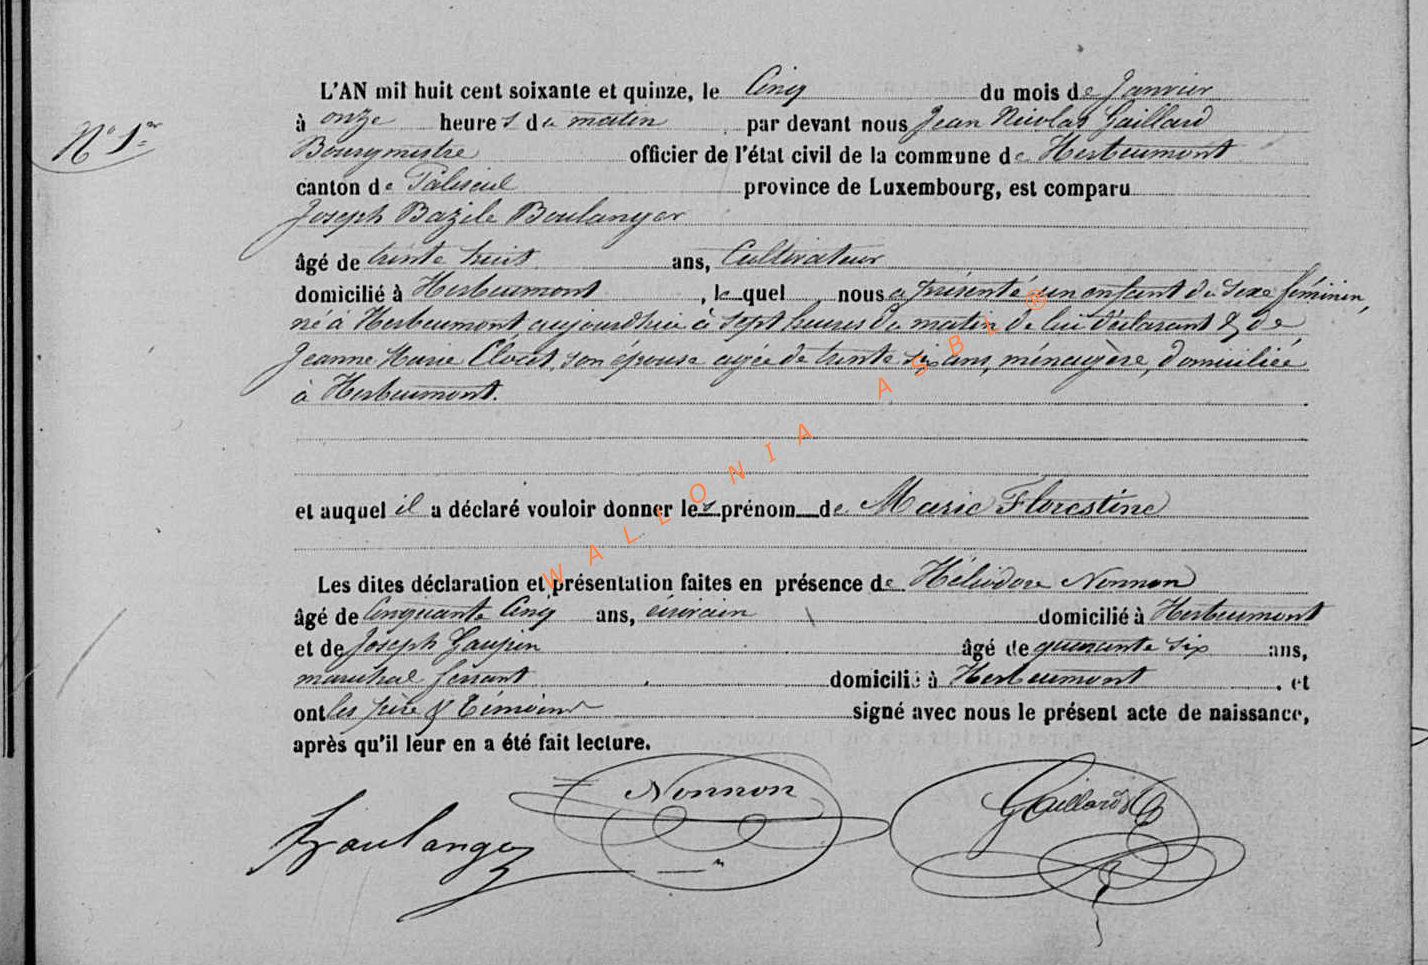 N° 1er
L'AN mil huit cent soixante et quinze, le Cinq du mois de Janvier
à onze heures du matin par devant nous Jean Nicolas Gaillard
Bourgmestre officier de l'état civil de la commune de Herbeumont
canton de Paliseul province de Luxembourg, est comparu
Joseph Bazile Boulanger
âgé de trente huit ans, Cultivateur
domicilié à Herbeumont, lequel nous a présenté un enfant du sexe féminin,
né à Herbeumont aujourdhui à sept heures du matin de lui déclarant & de
Jeanne Marie son épouse agée de trente six ans, ménagère, domiciliée
à Herbeumont.
et auquel il a déclaré vouloir donner les prénom de Marie Florestine
Les dites déclaration et présentation faites en présence de Héliodore Nonnon
âgé de Cinquante Cinq ans, écrivain domicilié à Herbeumont
et de Joseph âgé de quarante six ans,
maréchal ferrant domicilié à Herbeumont. et
ont les père & témoins signé avec nous le présent acte de naissance,
après qu'il leur en a été fait lecture.
Boulanger Nonnon Gaillard
WALLONIA ASBL ®